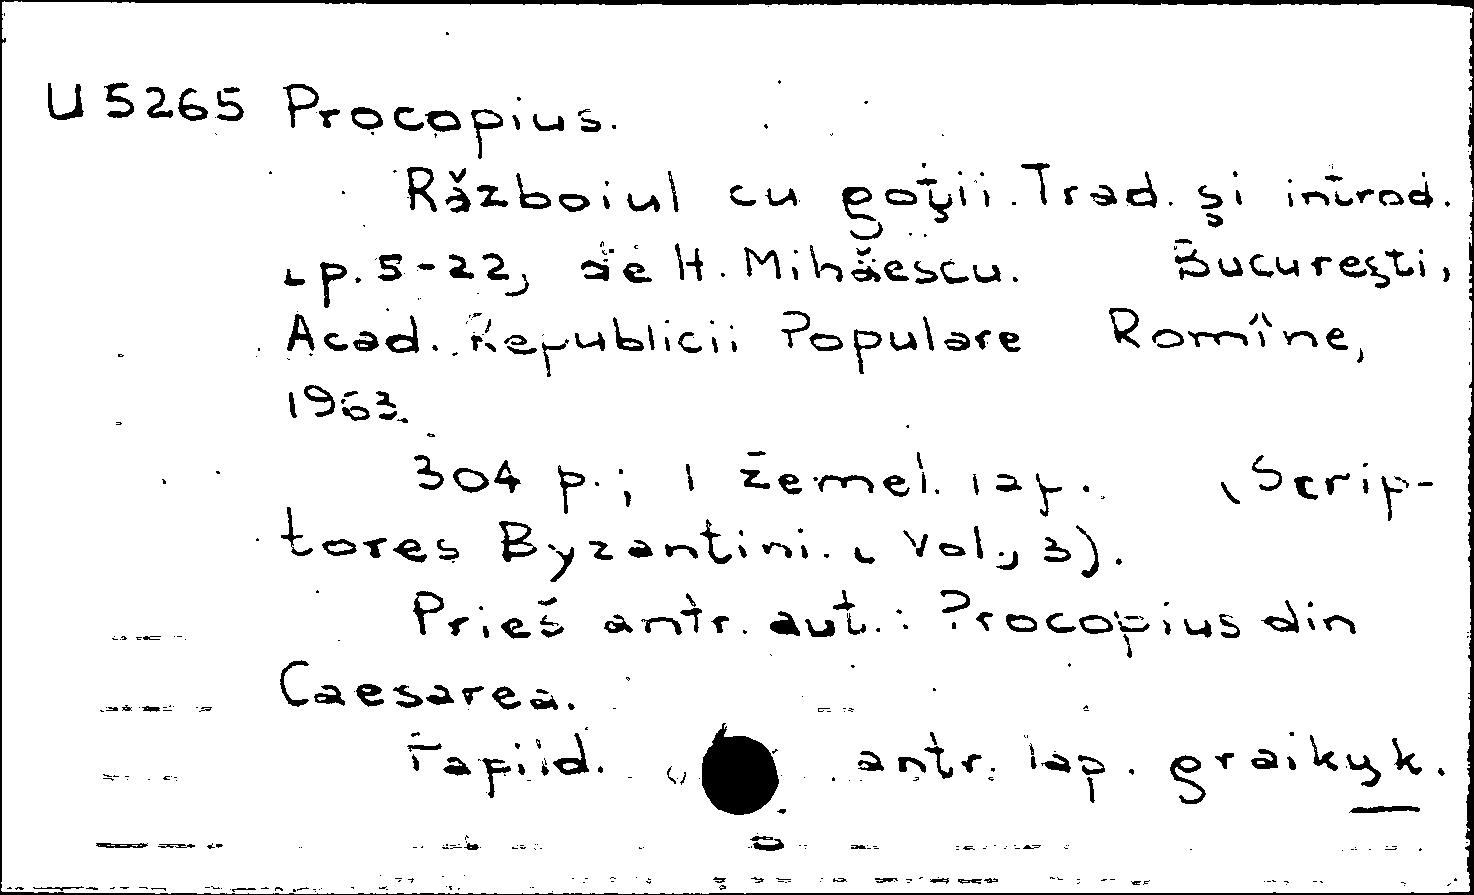 U 5265 Procopius.
Războiul cu goţii. Trad. şi introd.
[p. 5-22] de H. Mihăescu. Bucureşti,
Acad. Republicii Populare Romîne,
1963.
304 p.; 1 žemėl. lap. (Scrip-
tores Byzantini. [Vol.] 3).
Prieš antr. aut.: Procopius din
Caesarea.
Papild. antr. lap. graikų k.